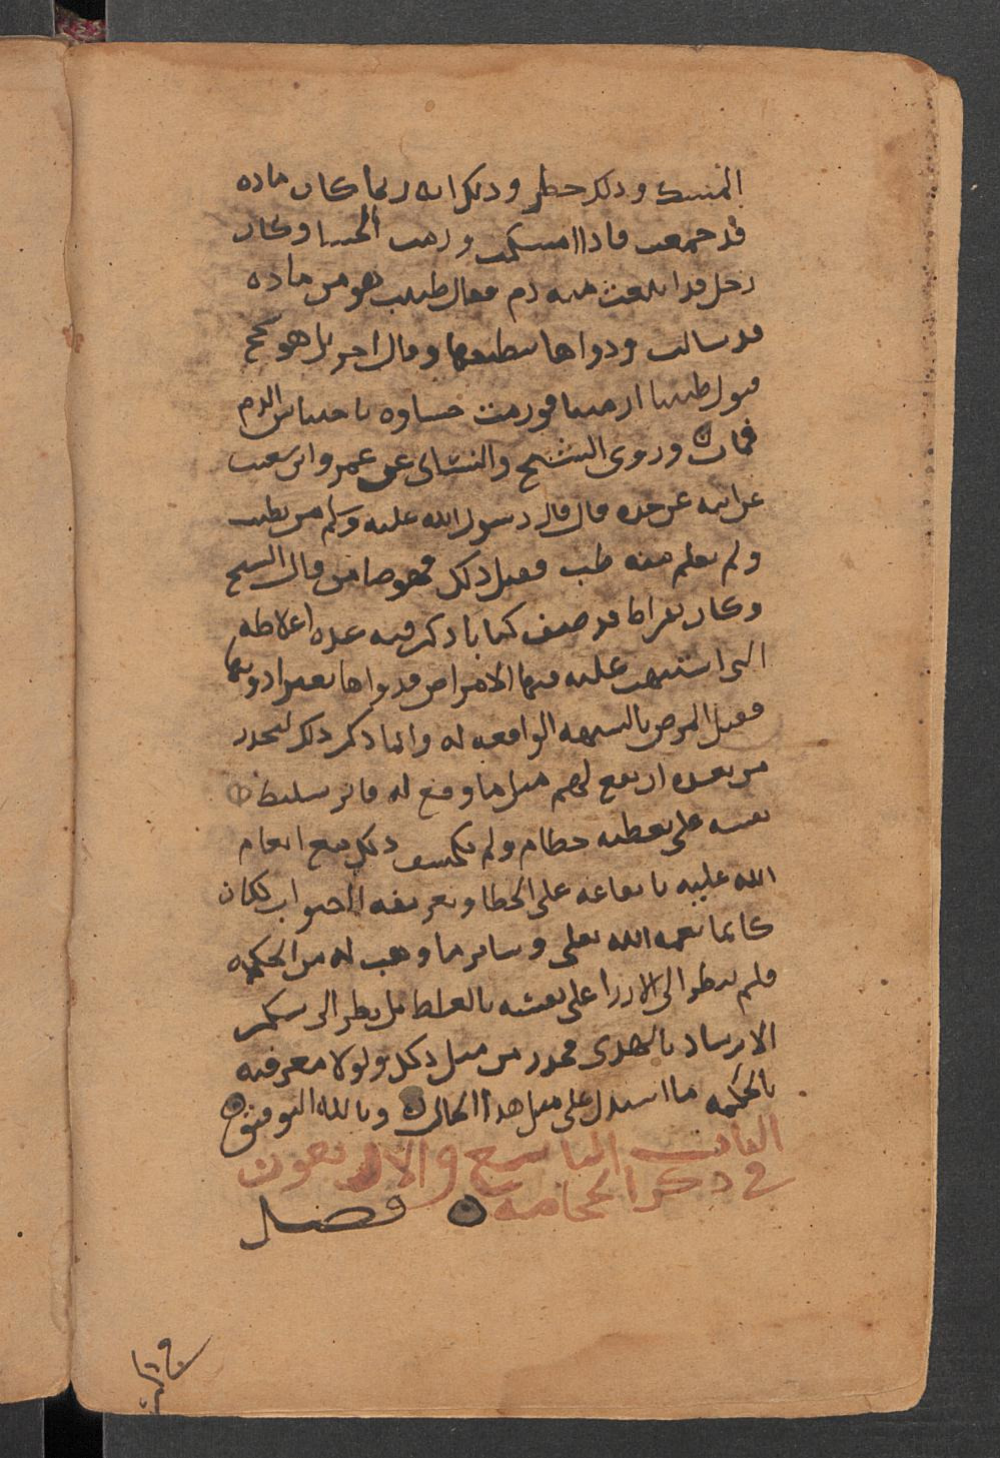 الممسك وذلك خطر وذلك انه ربما كان ماده
قد جمعت فاذا امسكت ورمت الحشا وكان
رجل قد انبعث منه دم فقال طبيب هو من ماده
قد سالت ودواها بقطعها وقال اخر بل هو
فورمت حشاوه باحتباس الدم
فمات وروى الشيخ والنسائي عن عمرو ابن شعيب
عن ابيه عن جده قال قال رسول الله عليه وسلم من تطبب
ولم يعلم منه طب فقبل ذلك فهو ضامن قال الشيخ
وكان بقراط قد صنف كتابا ذكر فيه عدة اغلاطه
التي اشتبهت عليه فيها الامراض فدواها بغير ادويتها
فقتل المرضى بالشبهه الواقعه له وانما ذكر ذلك ليحذر
من بعده ان يقع لهم مثل ما وقع له فاثر سلط
نفسه على حطام ولم ذلك مع انعام
الله عليه بايقاعه على الخطا وتعريفه الصواب فكان
كانما نعمه الله تعلى وساير ما وهب له من الحكمه
فلم ينظر الى الازرا على نفسه بالغلط بل نظر الى شكر
الارشاد بالهدى فحذر من مثل ذلك ولولا معرفته
بالحكمه ما استدل على مثل هذا الحال وبالله التوفيق
الباب التاسع والاربعون
في ذكر الحجامه فصل